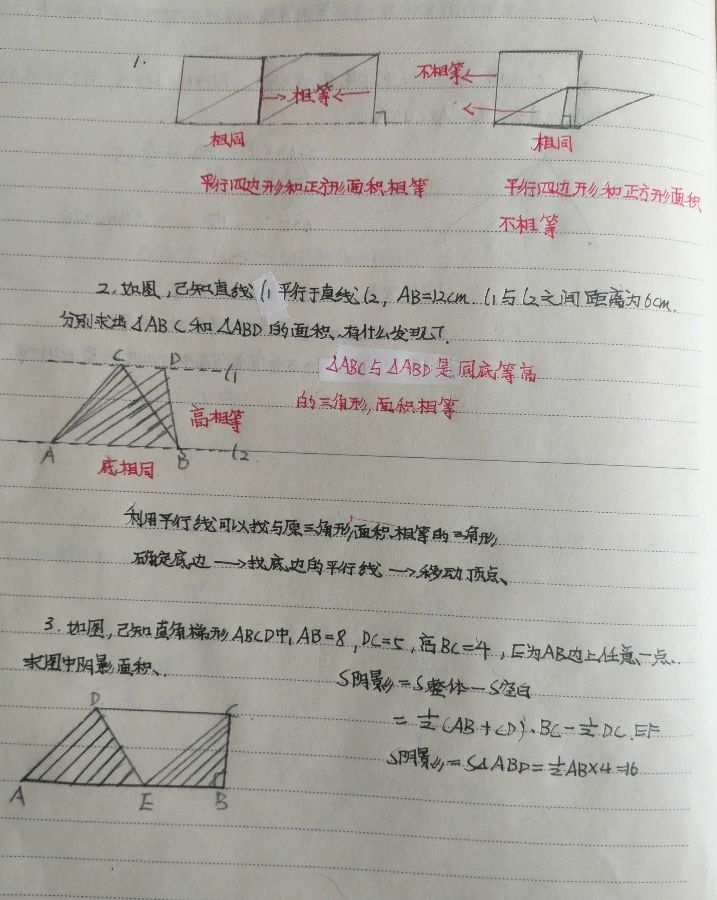 1.
不相等
相等
相同
相同
平行四边形和正方形面积相等
平行四边形和正方形面积
不相等
2. 如图,已知直线l1平行于直线l2, AB=12cm. l1与l2之间距离为6cm.
分别求出△ABC和△ABD的面积、有什么发现
C D l1
△ABC与△ABD是同底等高
的三角形,面积相等
高相等
A B l2
底相同
利用平行线可以找与原三角形面积相等的三角形
确定底边→找底边的平行线→移动顶点、
3. 如图,已知直角梯形ABCD中, AB=8, DC=5, 高BC=4, E为AB边上任意一点、
求图中阴影面积、
S阴影=S整体-S空白
D C
=½(AB+CD)·BC-½DC.EF
S阴影=S△ABD=½AB×4=16
A E B